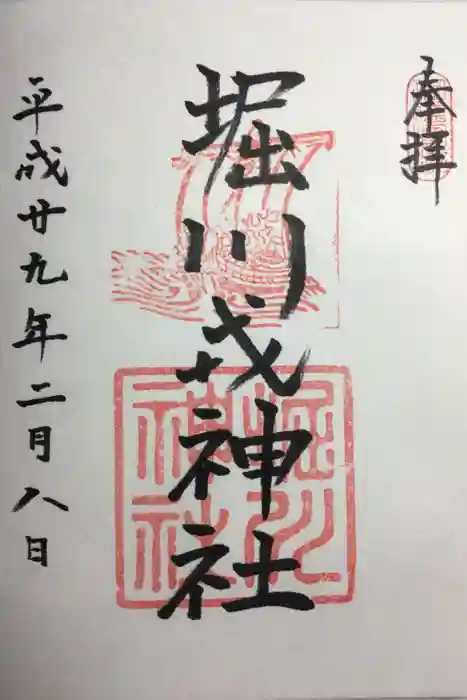 奉拝
堀川戎神社
堀川神社
平成廿九年二月八日